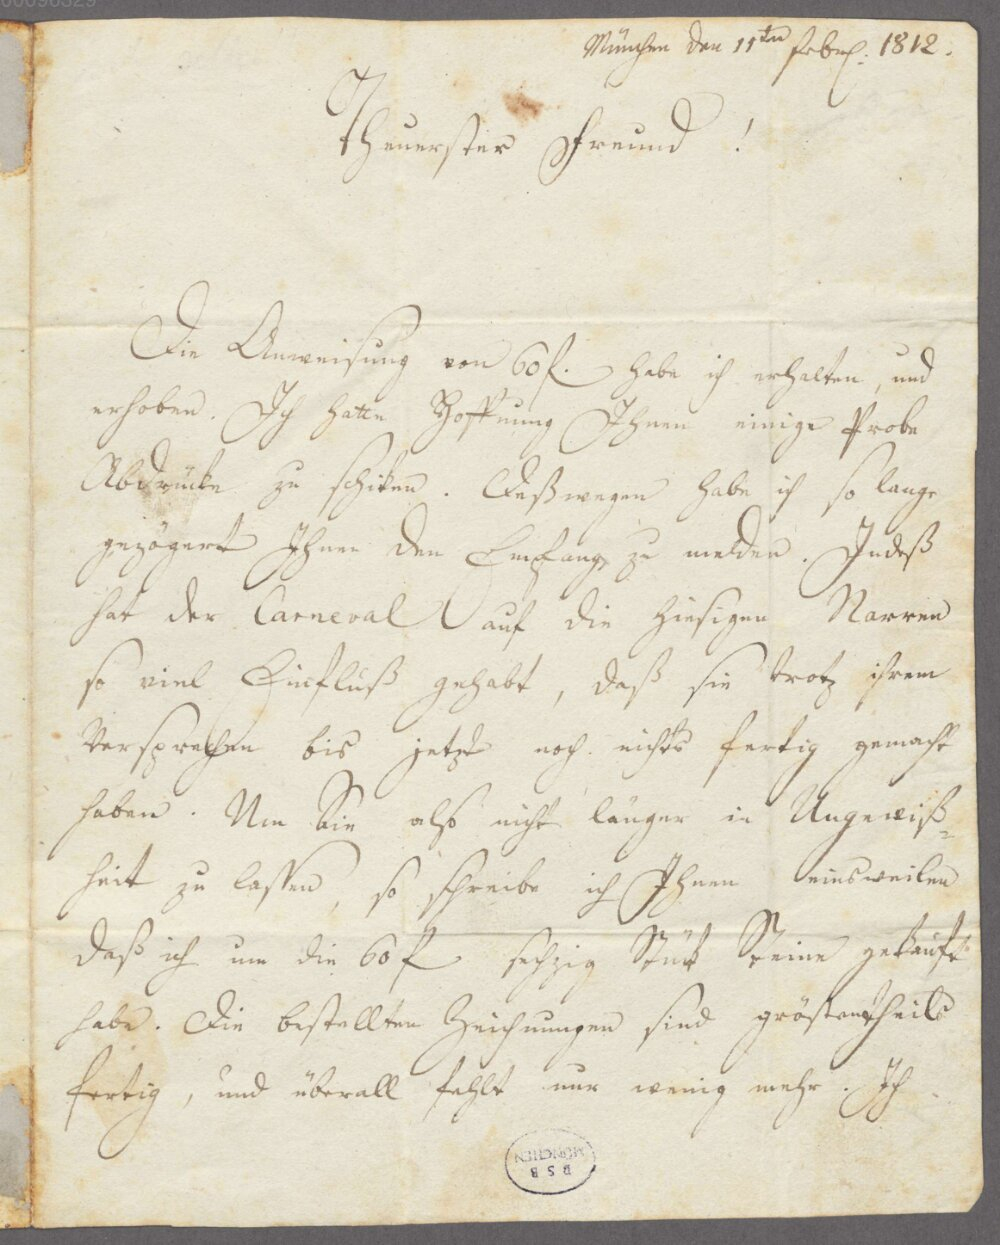 00096329
München den 11ten Febr. 1812.
Theuerster Freund!
Die Anweisung von 60 f. habe ich erhalten, und
erhoben. Ich hatte Hoffnung Ihnen einige Probe
Abdrücke zu schiken. Deßwegen habe ich so lange
gezögert Ihnen den Empfang zu melden. Indeß
hat der Carneval auf die hiesigen Narren
so viel Einfluß gehabt, daß sie trotz ihrem
Versprechen bis jetzt noch nichts fertig gemacht
haben. Um Sie also nicht länger in Ungewiß-
heit zu lassen, so schreibe ich Ihnen einsweilen
daß ich um die 60 f sechzig Stük Steine gekauft
habe. Die bestellten Zeichnungen sind gröstentheils
fertig, und überall fehlt nur wenig mehr. Ich
BSB
MÜNCHEN